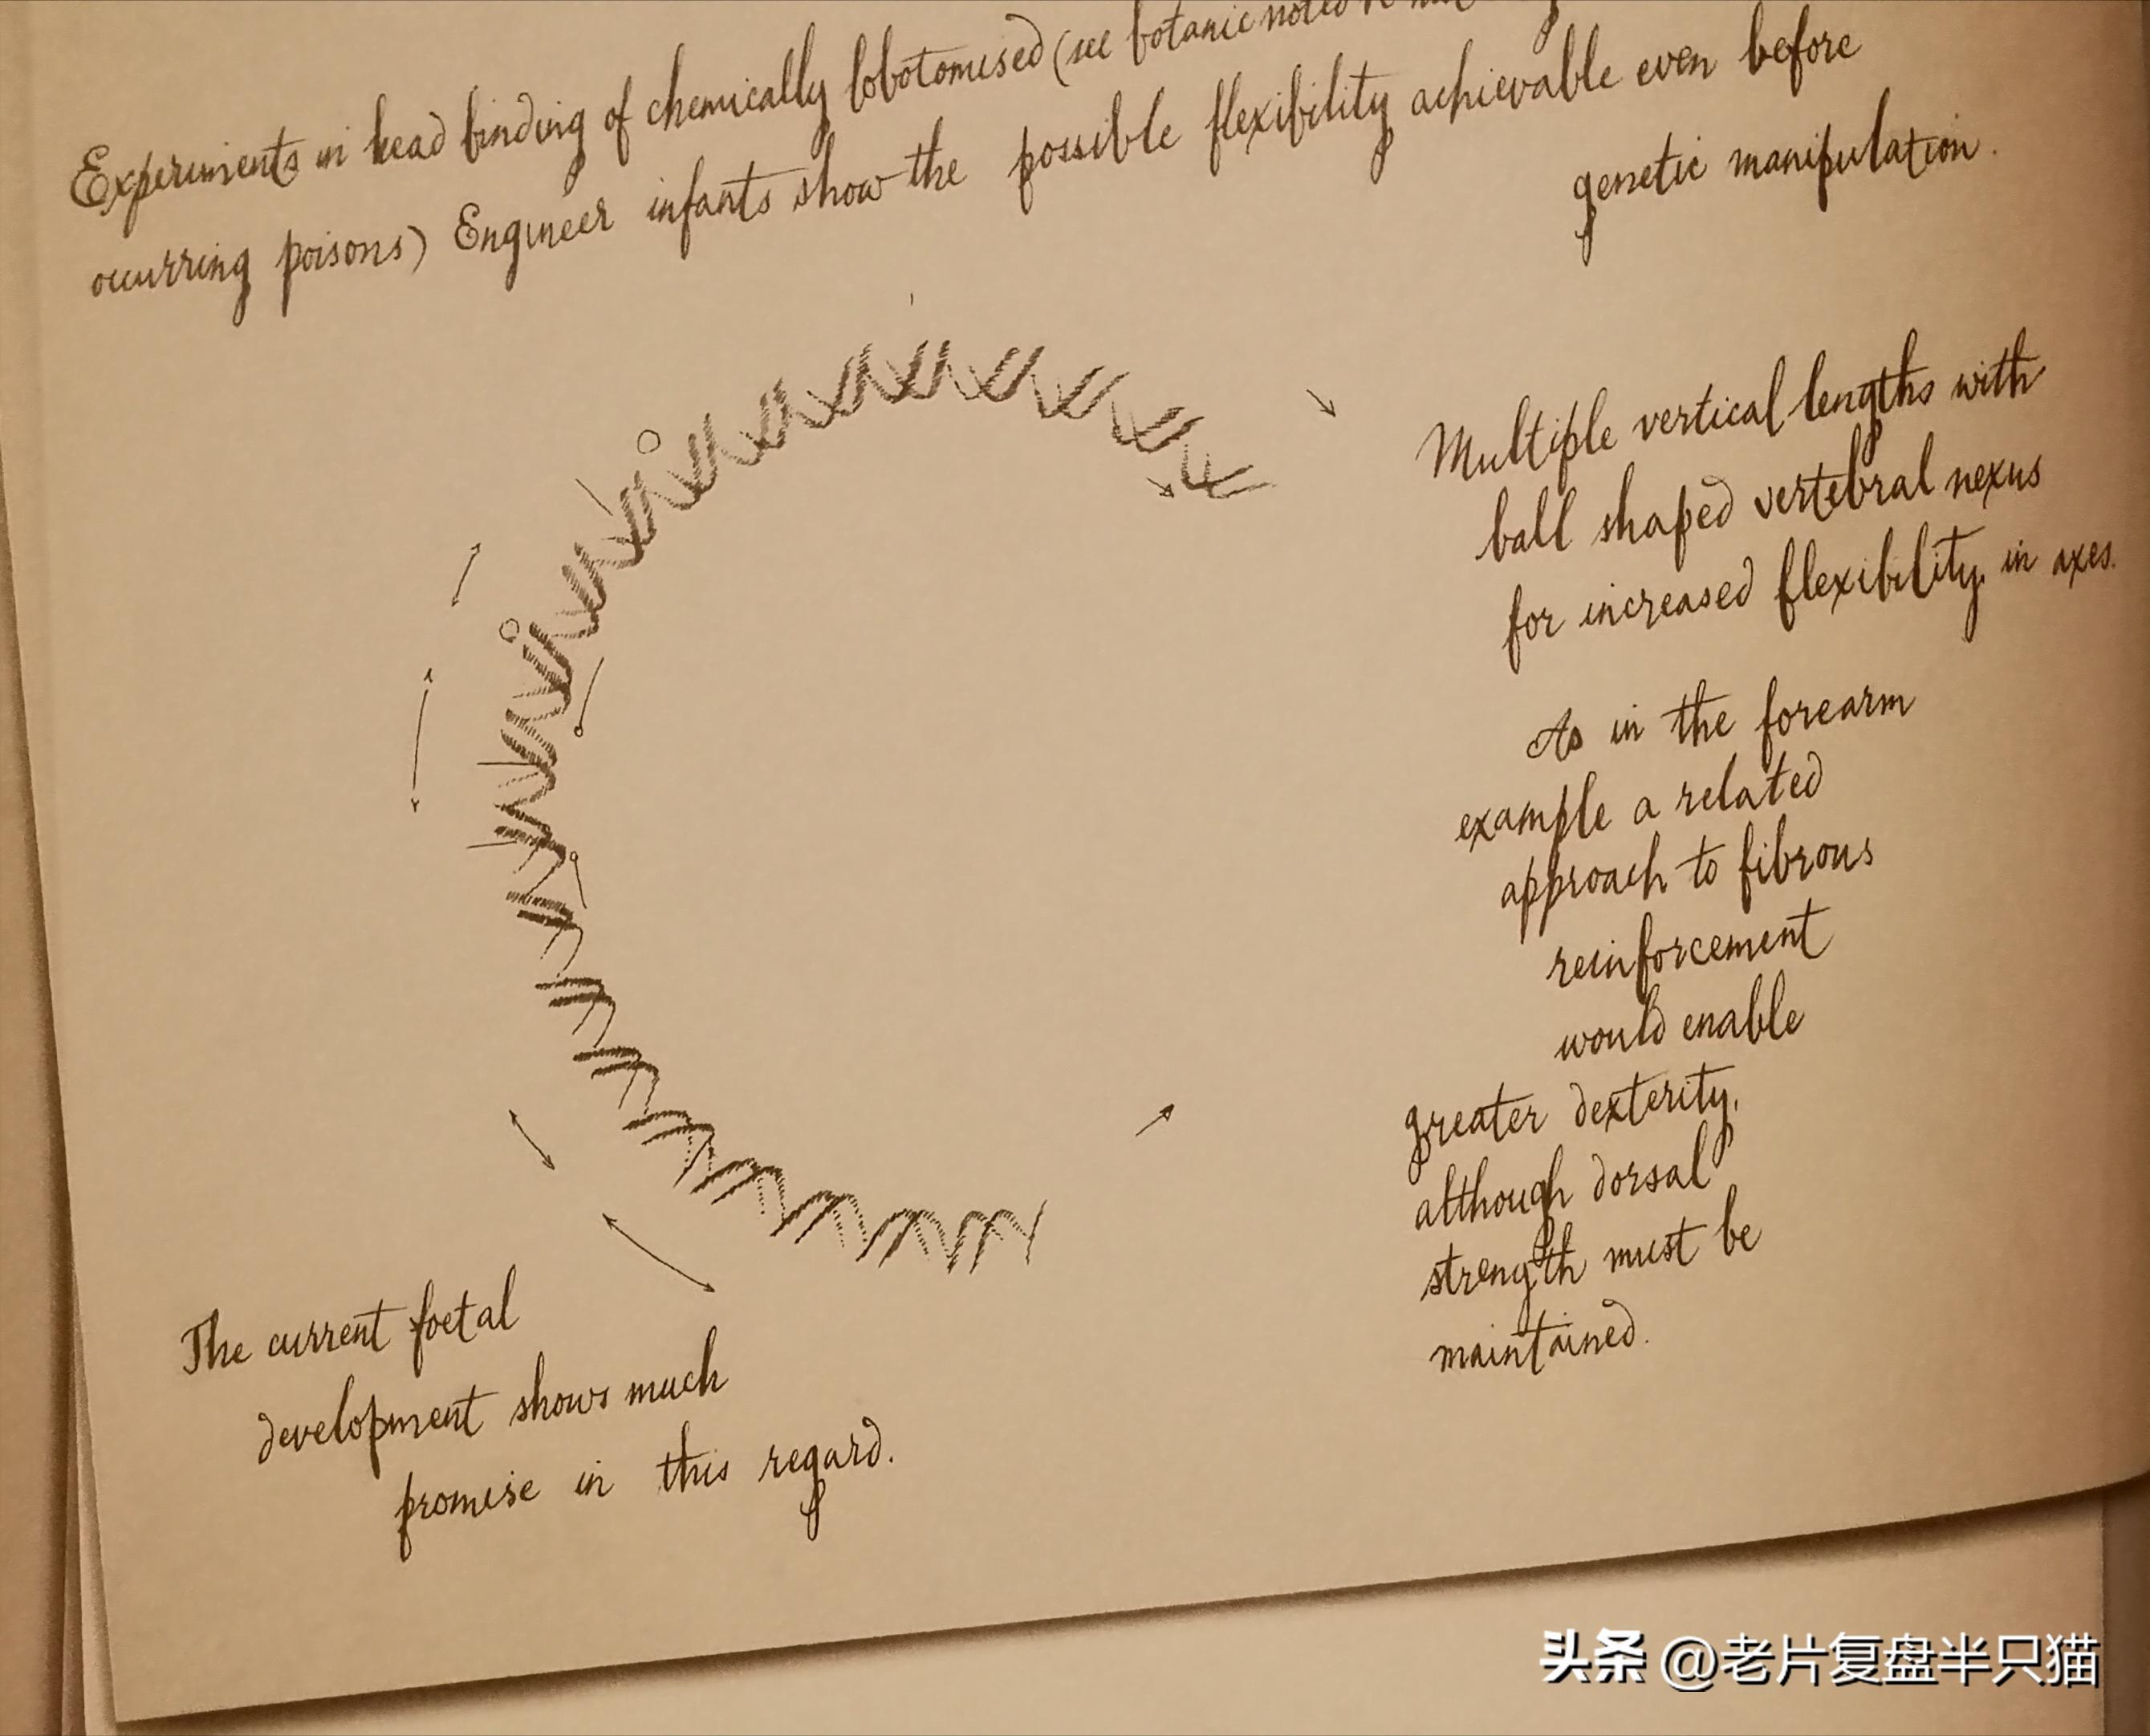 Experiments in head binding of chemically lobotomised (see botanic notes
occurring poisons) Engineer infants show the possible flexibility achievable even before
genetic manipulation.
Multiple vertical lengths with
ball shaped vertebral nexus
for increased flexibility in axes.
As in the forearm
example a related
approach to fibrous
reinforcement
would enable
greater dexterity,
although dorsal
strength must be
maintained.
The current foetal
development shows much
promise in this regard.
头条 @老片复盘半只猫